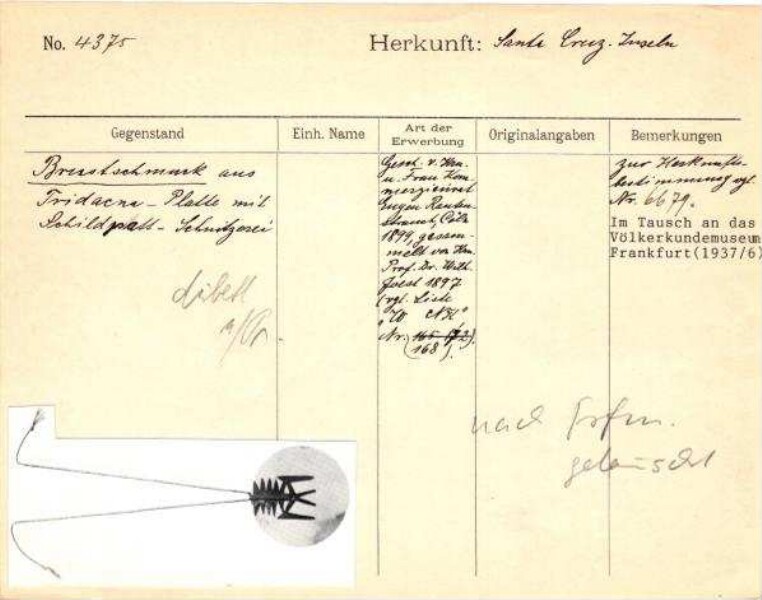 No. 4375 Herkunft: Santa Cruz-Inseln
Gegenstand Einh. Name Art der Erwerbung Originalangaben Bemerkungen
Brustschmuck aus
Tridacna-Platte mit
Schildpatt-Schnitzerei
Gesch. v. Hrn.
u. Frau Kom-
merzienrat
Eugen Rauten-
strauch, Cöln
1899, gesam-
melt von Hrn.
Prof. Dr. Wilh.
Joest 1897
(vgl. Liste
Nr. 165 (72)
(168).
zur Herkunfts-
bestimmung vgl.
Nr. 6679.
Im Tausch an das
Völkerkundemuseum
Frankfurt(1937/6)
nach Frfm.
getauscht